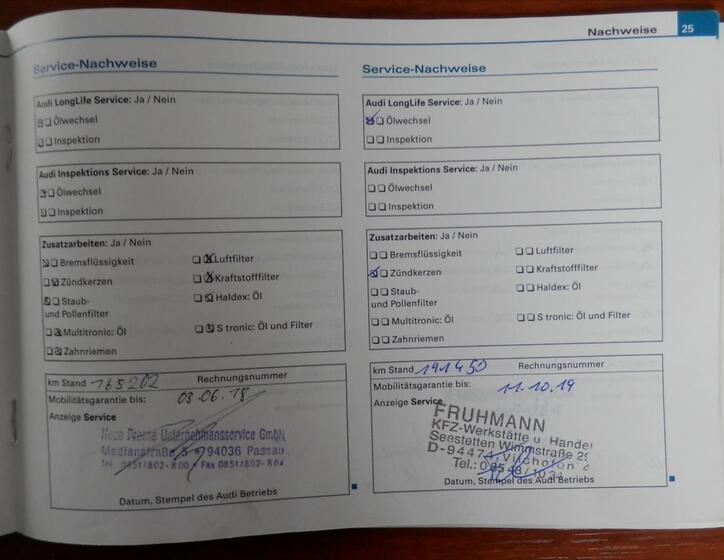 Nachweise 25
Service-Nachweise
Audi LongLife Service: Ja / Nein
Ölwechsel
Inspektion
Audi Inspektions Service: Ja / Nein
Ölwechsel
Inspektion
Zusatzarbeiten: Ja / Nein
Bremsflüssigkeit Luftfilter
Zündkerzen Kraftstofffilter
Staub- Haldex: Öl
und Pollenfilter
Multitronic: Öl S tronic: Öl und Filter
Zahnriemen
km Stand 165202 Rechnungsnummer
Mobilitätsgarantie bis: 08.06.18
Anzeige Service
Neue Presse Unternehmensservice GmbH
Medienstraße 5 94036 Passau
Tel. 0851/802-800 Fax 0851/802-804
Datum, Stempel des Audi Betriebs
Service-Nachweise
Audi LongLife Service: Ja / Nein
Ölwechsel
Inspektion
Audi Inspektions Service: Ja / Nein
Ölwechsel
Inspektion
Zusatzarbeiten: Ja / Nein
Bremsflüssigkeit Luftfilter
Zündkerzen Kraftstofffilter
Staub- Haldex: Öl
und Pollenfilter
Multitronic: Öl S tronic: Öl und Filter
Zahnriemen
km Stand 191450 Rechnungsnummer
Mobilitätsgarantie bis: 11.10.19
Anzeige Service
FRUHMANN
KFZ-Werkstätte u. Handel
Seestetten Wimmstraße 29
D-94474 Vilshofen
Tel.:
Datum, Stempel des Audi Betriebs